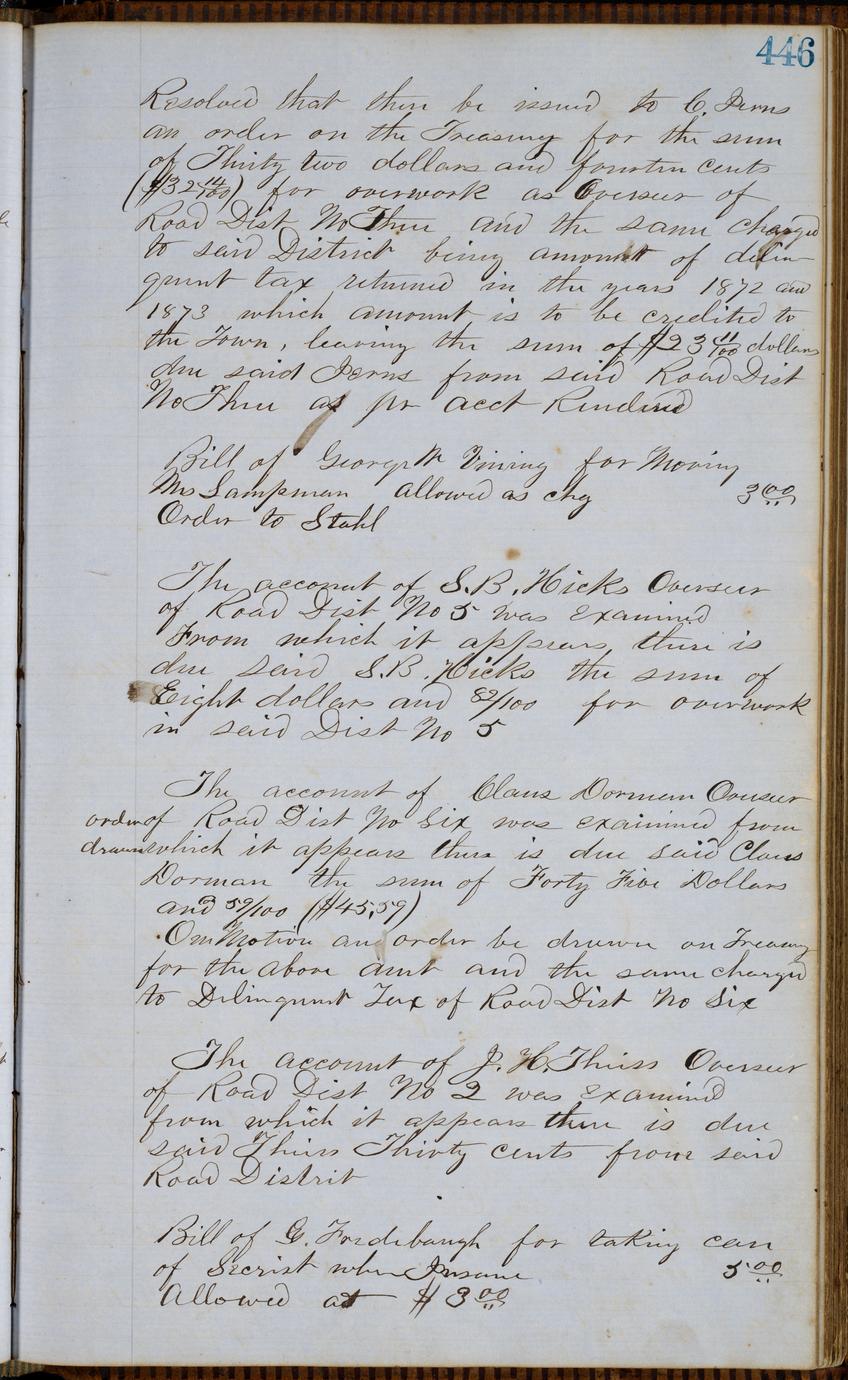 446
Resolved that there be issued to C. Perns
an order on the Treasury for the sum
of Thirty two dollars and fourteen cents
($32 14/100) for overwork as Overseer of
Road Dist No Three and the same charged
to said District being amount of delin-
quent tax returned in the years 1872 and
1873 which amount is to be credited to
the Town, leaving the sum of $23 11/100 dollars
due said Perns from said Road Dist
No Three as pr acct Rendered
Bill of George W Vining for Moving
Mrs Lampman allowed as chg 3 00
Order to Stahl
The account of S. B. Hicks Overseer
of Road Dist No 5 was examined
From which it appears there is
due said S. B. Hicks the sum of
Eight dollars and 82/100 for overwork
in said Dist No 5
The account of Claus Dorman Overseer
order of Road Dist No Six was examined from
drawn which it appears there is due said Claus
Dorman the sum of Forty Five Dollars
and 59/100 ($45,59)
On Motion an order be drawn on Treasury
for the above amt and the same charged
to Delinquent Tax of Road Dist No Six
The account of J. H. Thirss Overseer
of Road Dist No 2 was examined
from which it appears there is due
said Thirss Thirty cents from said
Road Distrit
Bill of G. Fredebaugh for taking care
of Secrist when Insane 5 00
Allowed at $ 3 00